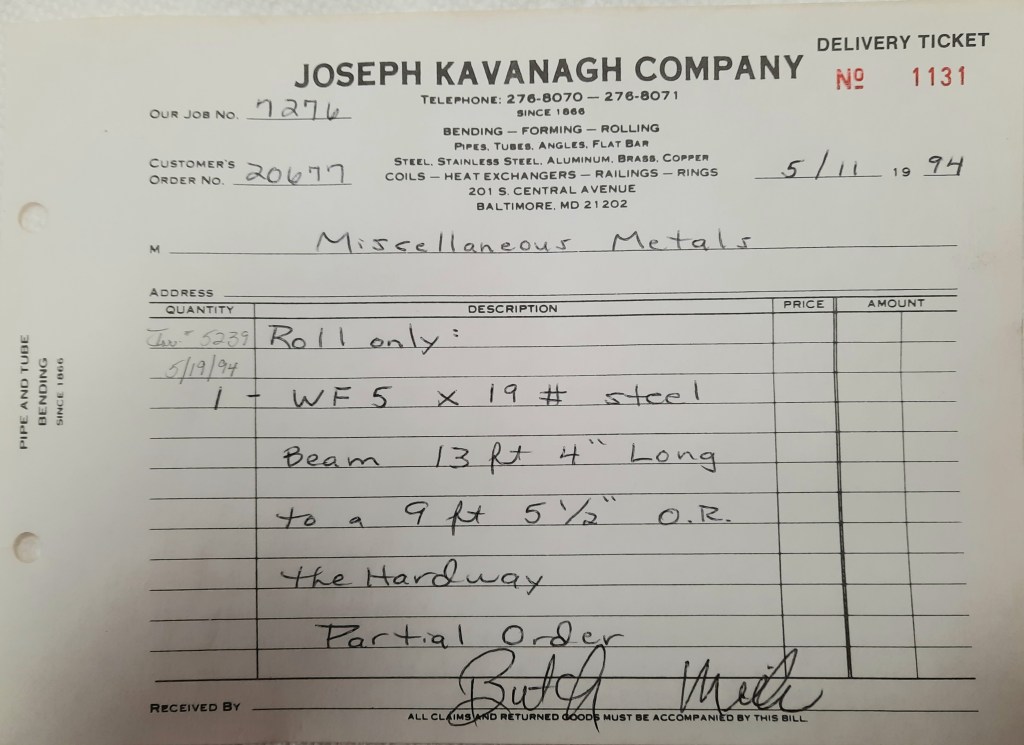 DELIVERY TICKET
JOSEPH KAVANAGH COMPANY
Nº 1131
TELEPHONE: 276-8070 — 276-8071
SINCE 1866
OUR JOB NO. 7276
BENDING — FORMING — ROLLING
PIPES, TUBES, ANGLES, FLAT BAR
STEEL, STAINLESS STEEL, ALUMINUM, BRASS, COPPER
CUSTOMER'S
ORDER NO. 20677
COILS — HEAT EXCHANGERS — RAILINGS — RINGS
5/11 19 94
201 S. CENTRAL AVENUE
BALTIMORE, MD 21202
M Miscellaneous Metals
ADDRESS
QUANTITY DESCRIPTION PRICE AMOUNT
Inv. # 5239 Roll only:
5/19/94
1 - WF 5 x 19 # steel
Beam 13 ft 4" Long
to a 9 ft 5 1/2" O.R.
the Hardway
Partial Order
RECEIVED BY Butch
ALL CLAIMS AND RETURNED GOODS MUST BE ACCOMPANIED BY THIS BILL
PIPE AND TUBE
BENDING
SINCE 1866